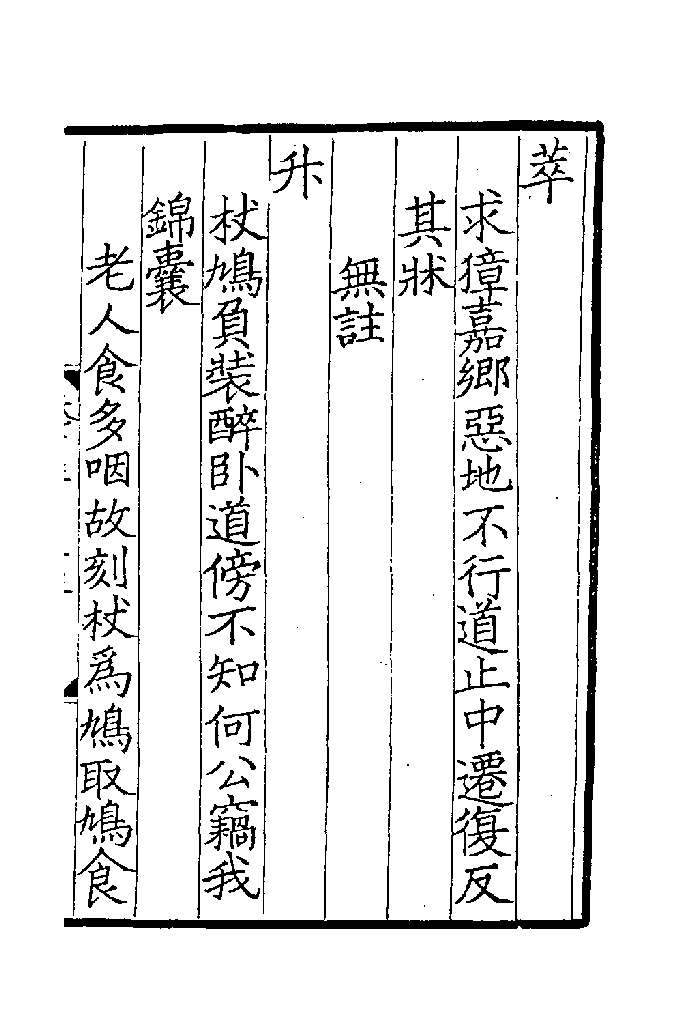 萃
求獐嘉鄉惡地不行道止中遷復反
其牀
無註
升
杖鳩負裝醉卧道傍不知何公竊我
錦囊
老人食多咽故刻杖爲鳩取鳩食